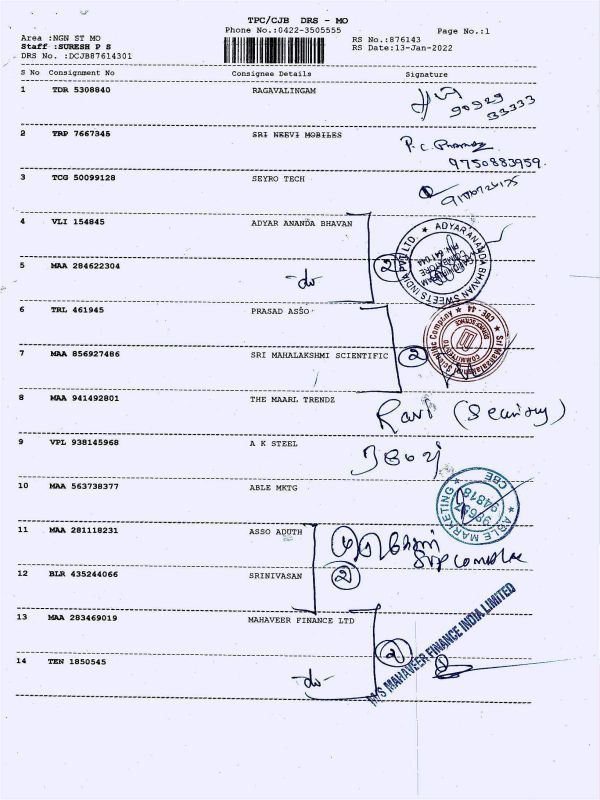 TPC/CJB DRS - MO
Phone No.:0422-3505555
Page No.:1
Area :NGN ST MO
RS No.:876143
Staff :SURESH P S
RS Date:13-Jan-2022
DRS No. :DCJB87614301
S No Consignment No Consignee Details Signature
1 TDR 5308840 RAGAVALINGAM
90929
33333
2 TRP 7667345 SRI NEEVI MOBILES
P. C. Pharmacy
9750883959.
3 TCG 50099128 SEYRO TECH
4 VLI 154845 ADYAR ANANDA BHAVAN
ADYAR ANANDA BHAVAN SWEETS INDIA PVT LTD.
5 MAA 284622304 -do- 2
6 TRL 461945 PRASAD ASSO
7 MAA 856927486 SRI MAHALAKSHMI SCIENTIFIC 2
Sri Mahalakshmi Scientific Company
CBE - 44
8 MAA 941492801 THE MAARL TRENDZ
Ravi (Security)
9 VPL 938145968 A K STEEL
10 MAA 563738377 ABLE MKTG
ABLE MARKETING CBE
11 MAA 281118231 ASSO ADUTH
12 BLR 435244066 SRINIVASAN 2
13 MAA 283469019 MAHAVEER FINANCE LTD
2
M/S MAHAVEER FINANCE INDIA LIMITED
14 TEN 1850545 -do-